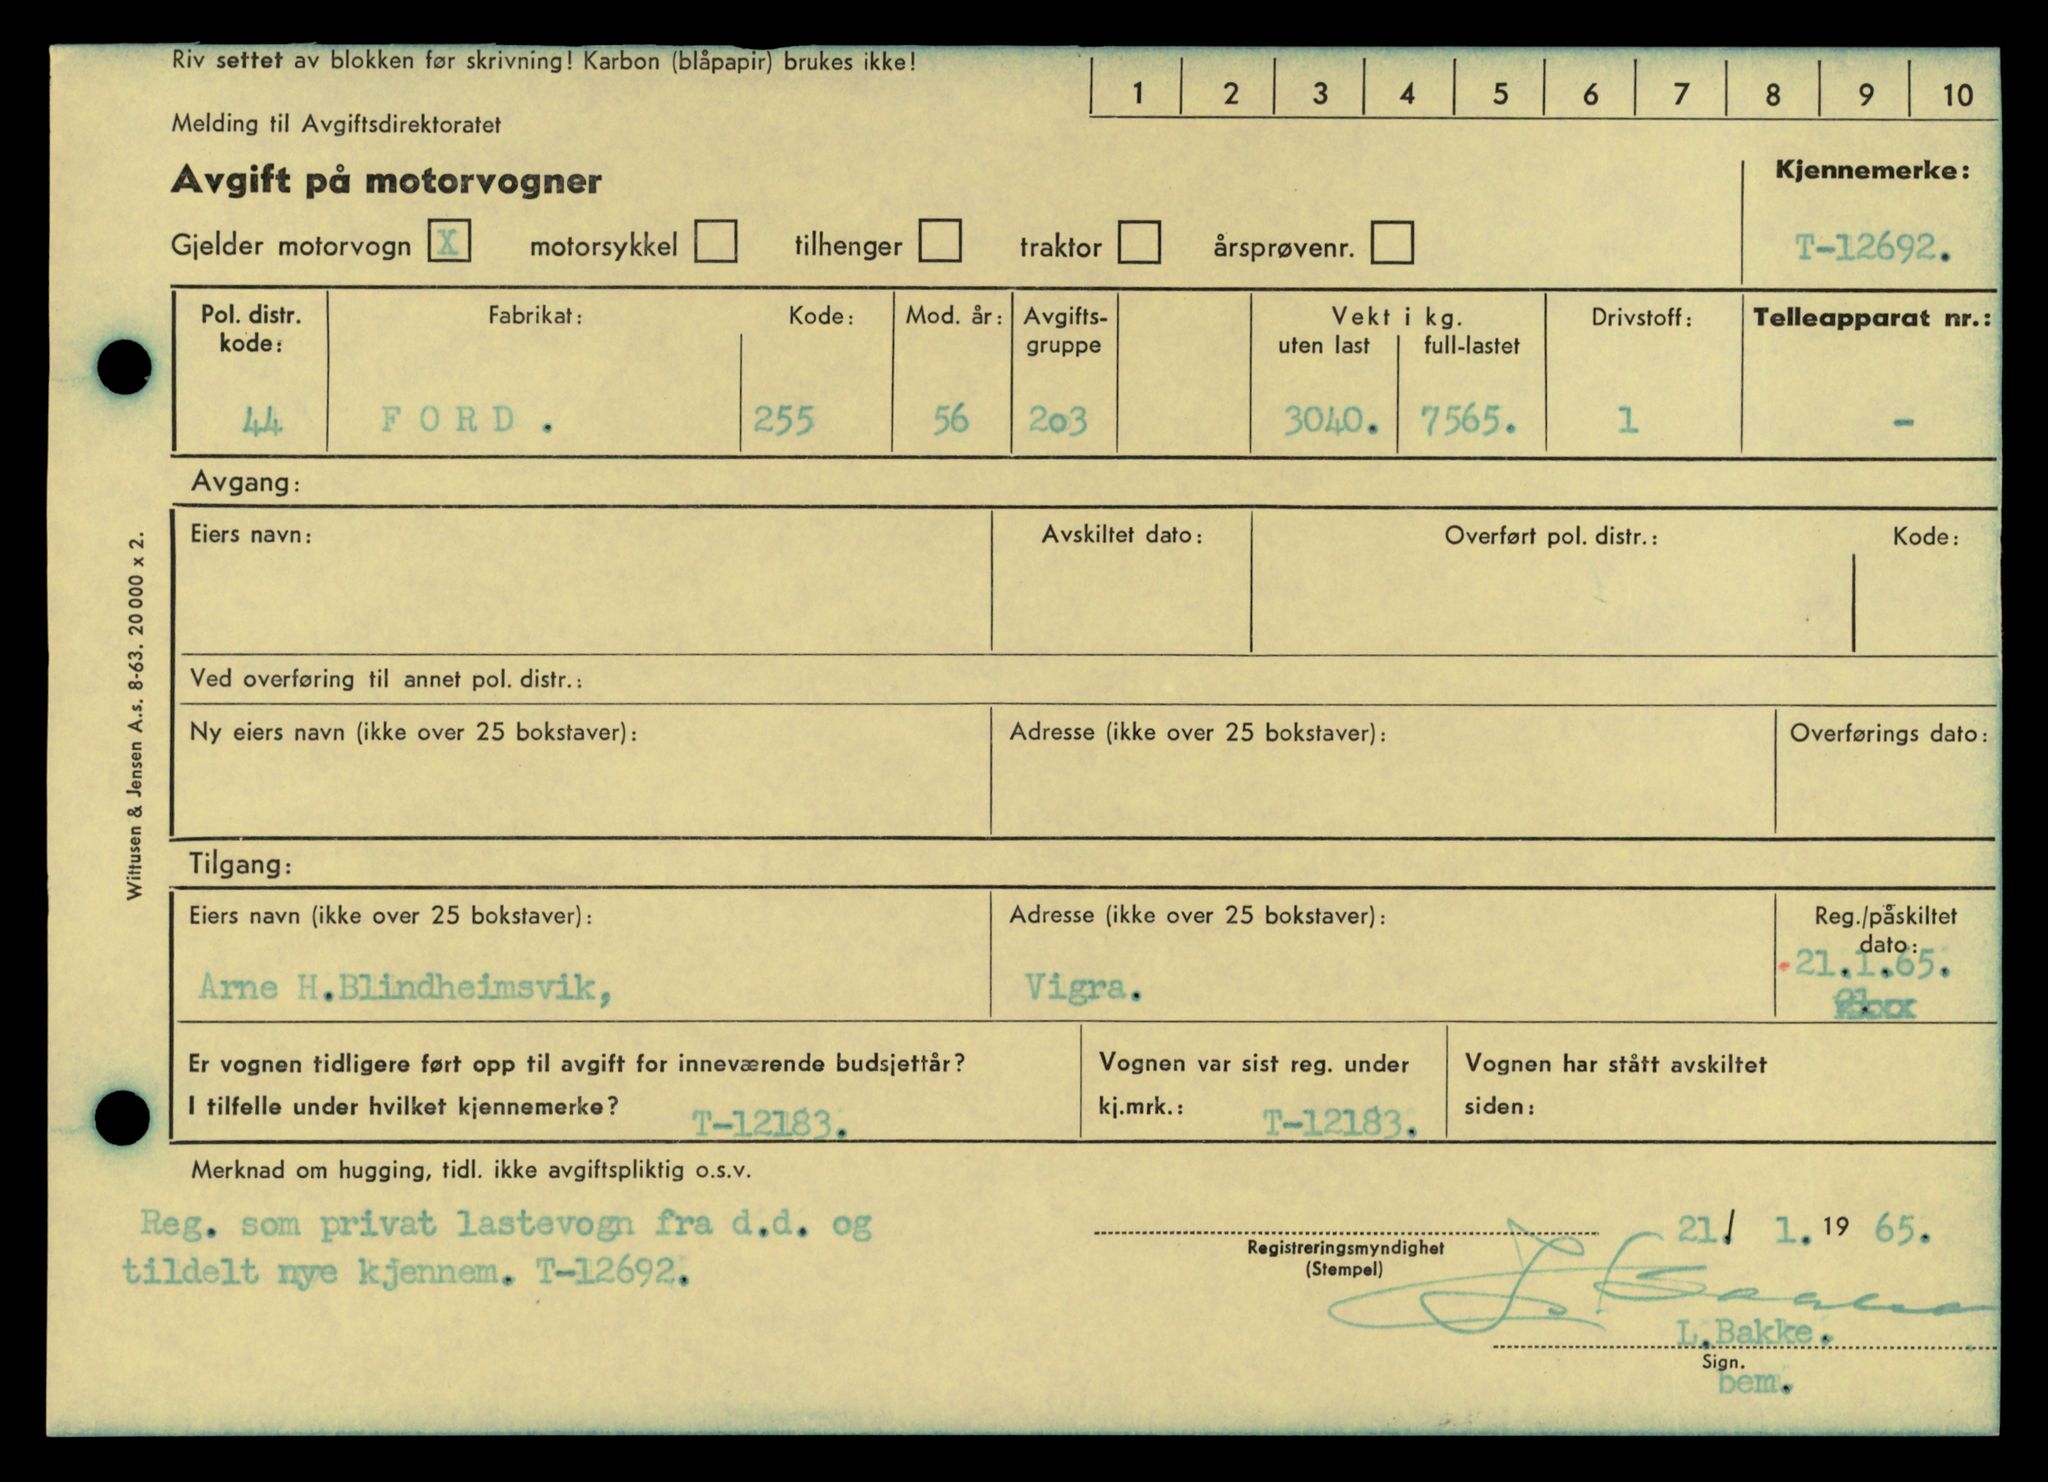 Riv settet av blokken før skrivning! Karbon (blåpapir) brukes ikke!
1 2 3 4 5 6 7 8 9 10
Melding til Avgiftsdirektoratet
Avgift på motorvogner
Kjennemerke:
Gjelder motorvogn X motorsykkel tilhenger traktor årsprøvenr.
T-12692.
Pol. distr. kode: Fabrikat: Kode: Mod. år: Avgifts-gruppe Vekt i kg. uten last full-lastet Drivstoff: Telleapparat nr.:
44 FORD. 255 56 203 3040. 7565. 1 -
Avgang:
Eiers navn: Avskiltet dato: Overført pol. distr.: Kode:
Ved overføring til annet pol. distr.:
Ny eiers navn (ikke over 25 bokstaver): Adresse (ikke over 25 bokstaver): Overførings dato:
Tilgang:
Eiers navn (ikke over 25 bokstaver): Adresse (ikke over 25 bokstaver): Reg./påskiltet dato:
21.1.65.
Arne H.Blindheimsvik, Vigra.
Er vognen tidligere ført opp til avgift for inneværende budsjettår? Vognen var sist reg. under Vognen har stått avskiltet
I tilfelle under hvilket kjennemerke? T-12183. kj.mrk.: T-12183. siden:
Merknad om hugging, tidl. ikke avgiftspliktig o.s.v.
Reg. som privat lastevogn fra d.d. og
tildelt nye kjennem. T-12692.
21/ 1. 19 65.
Registreringsmyndighet
(Stempel)
L. Bakke
L.Bakke.
Sign.
bem.
Wittusen & Jensen A.s. 8-63. 20 000 x 2.